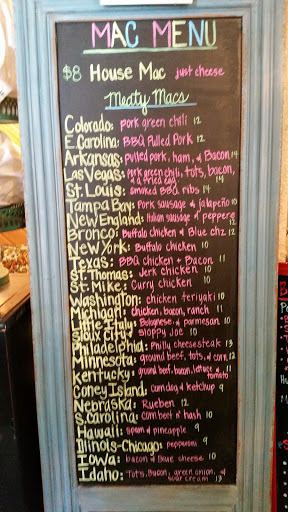 MAC MENU
$8 House Mac just cheese
Meaty Macs
Colorado: pork green chili 12
E.Carolina: BBQ Pulled Pork 12
Arkansas: pulled pork, ham, & Bacon 14
Las Vegas: pork green chili, tots, bacon,
& a fried egg 14
St. Louis: smoked BBQ ribs 14
Tampa Bay: Pork sausage & jalapeño 10
New England: Italian sausage & peppers 12
Bronco: Buffalo chicken & Blue chz 12
New York: Buffalo chicken 10
Texas: BBQ chicken & Bacon 11
St. Thomas: Jerk chicken 10
St. Mike: Curry chicken 10
Washington: chicken teriyaki 10
Michigan: chicken, bacon, ranch 11
Little Italy: Bolognese & parmesan 10
Sioux City: Sloppy Joe 10
Philadelphia: Philly cheesesteak 13
Minnesota: ground beef, tots, & corn 12
Kentucky: ground beef, bacon, lettuce & tomato 11
Coney Island: corndog & ketchup 9
Nebraska: Rueben 12
S.Carolina: corn beef n' hash 10
Hawaii: spam & pineapple 9
Illinois-Chicago: pepperoni 9
Iowa: bacon & blue cheese 10
Idaho: Tots, Bacon, green onion, &
sour cream 13